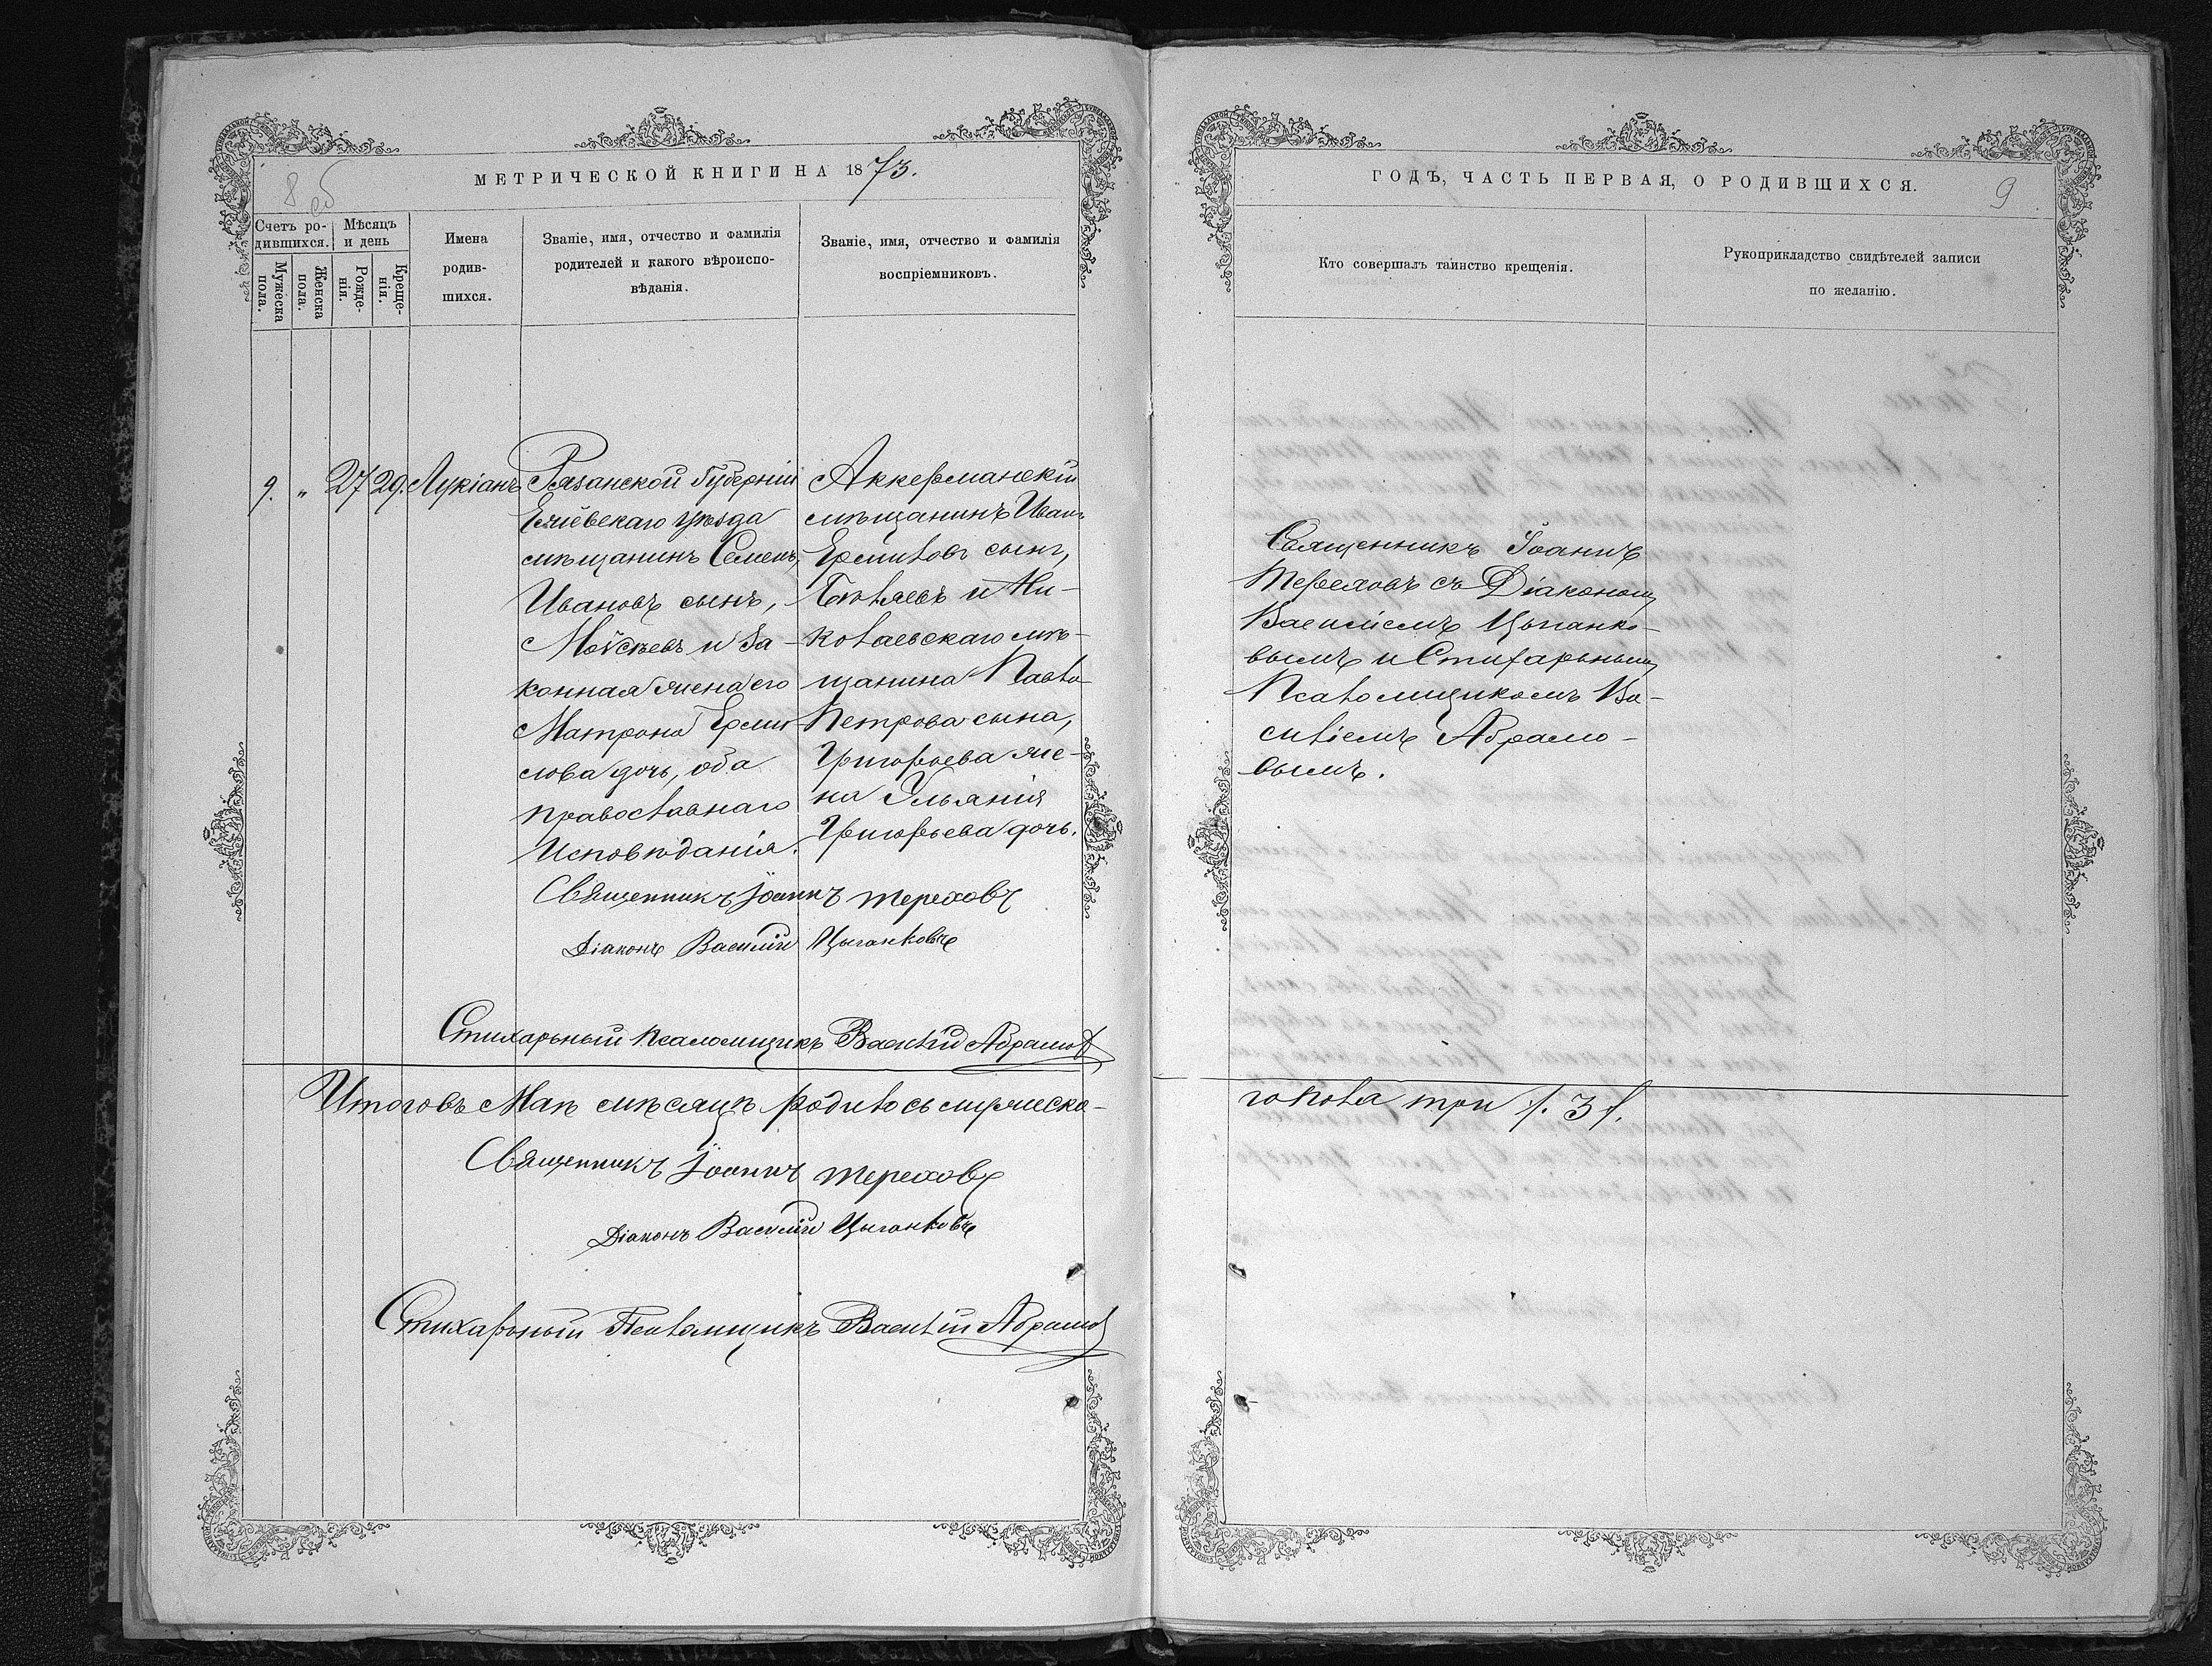 8 об
МЕТРИЧЕСКОЙ КНИГИ НА 1873.
Счетъ ро-
дившихся.
Мѣсяцъ
и день
Мужеска
пола.
Женска
пола.
Рожде-
нія.
Креще-
нія.
Имена
родив-
шихся.
Званіе, имя, отчество и фамилія
родителей и какого вѣроиспо-
вѣданія.
Званіе, имя, отчество и фамилія
воспріемниковъ.
9. " 27 29. Лукіанъ
Рязанской Губерніи
уѣзда
мѣщанинъ Семенъ
Ивановъ сынъ,
Моѵсѣевъ и За-
конная жена его
Матрона Ерми-
лова дочь, оба
православнаго
Исповѣданія.
Аккерманскій
мѣщанинъ Иванъ
Ермиловъ сынъ,
и Ни-
колаевскаго мѣ-
щанина Павла
Петрова сына,
Григорьева же-
на Ульянія
Григорьева дочь.
Священникъ Іоаннъ Тереховъ
Діаконъ Василій Цыганковъ
Стихарный псаломщикъ Василій Абрамовъ
Итоговъ Маѣ мѣсяцѣ родилось мужеска-
Священникъ Іоаннъ Тереховъ
Діаконъ Василій Цыганковъ
Стихарный Псаломщикъ Василій Абрамовъ
ГОДЪ, ЧАСТЬ ПЕРВАЯ, О РОДИВШИХСЯ.
9
Кто совершалъ таинство крещенія.
Рукоприкладство свидѣтелей записи
по желанію.
Священникъ Іоаннъ
Тереховъ съ Діакономъ
Василіемъ Цыганко-
вымъ и Стихарнымъ
Псаломщикомъ Ва-
силіемъ Абрамо-
вымъ.
го пола три /. 3 /.